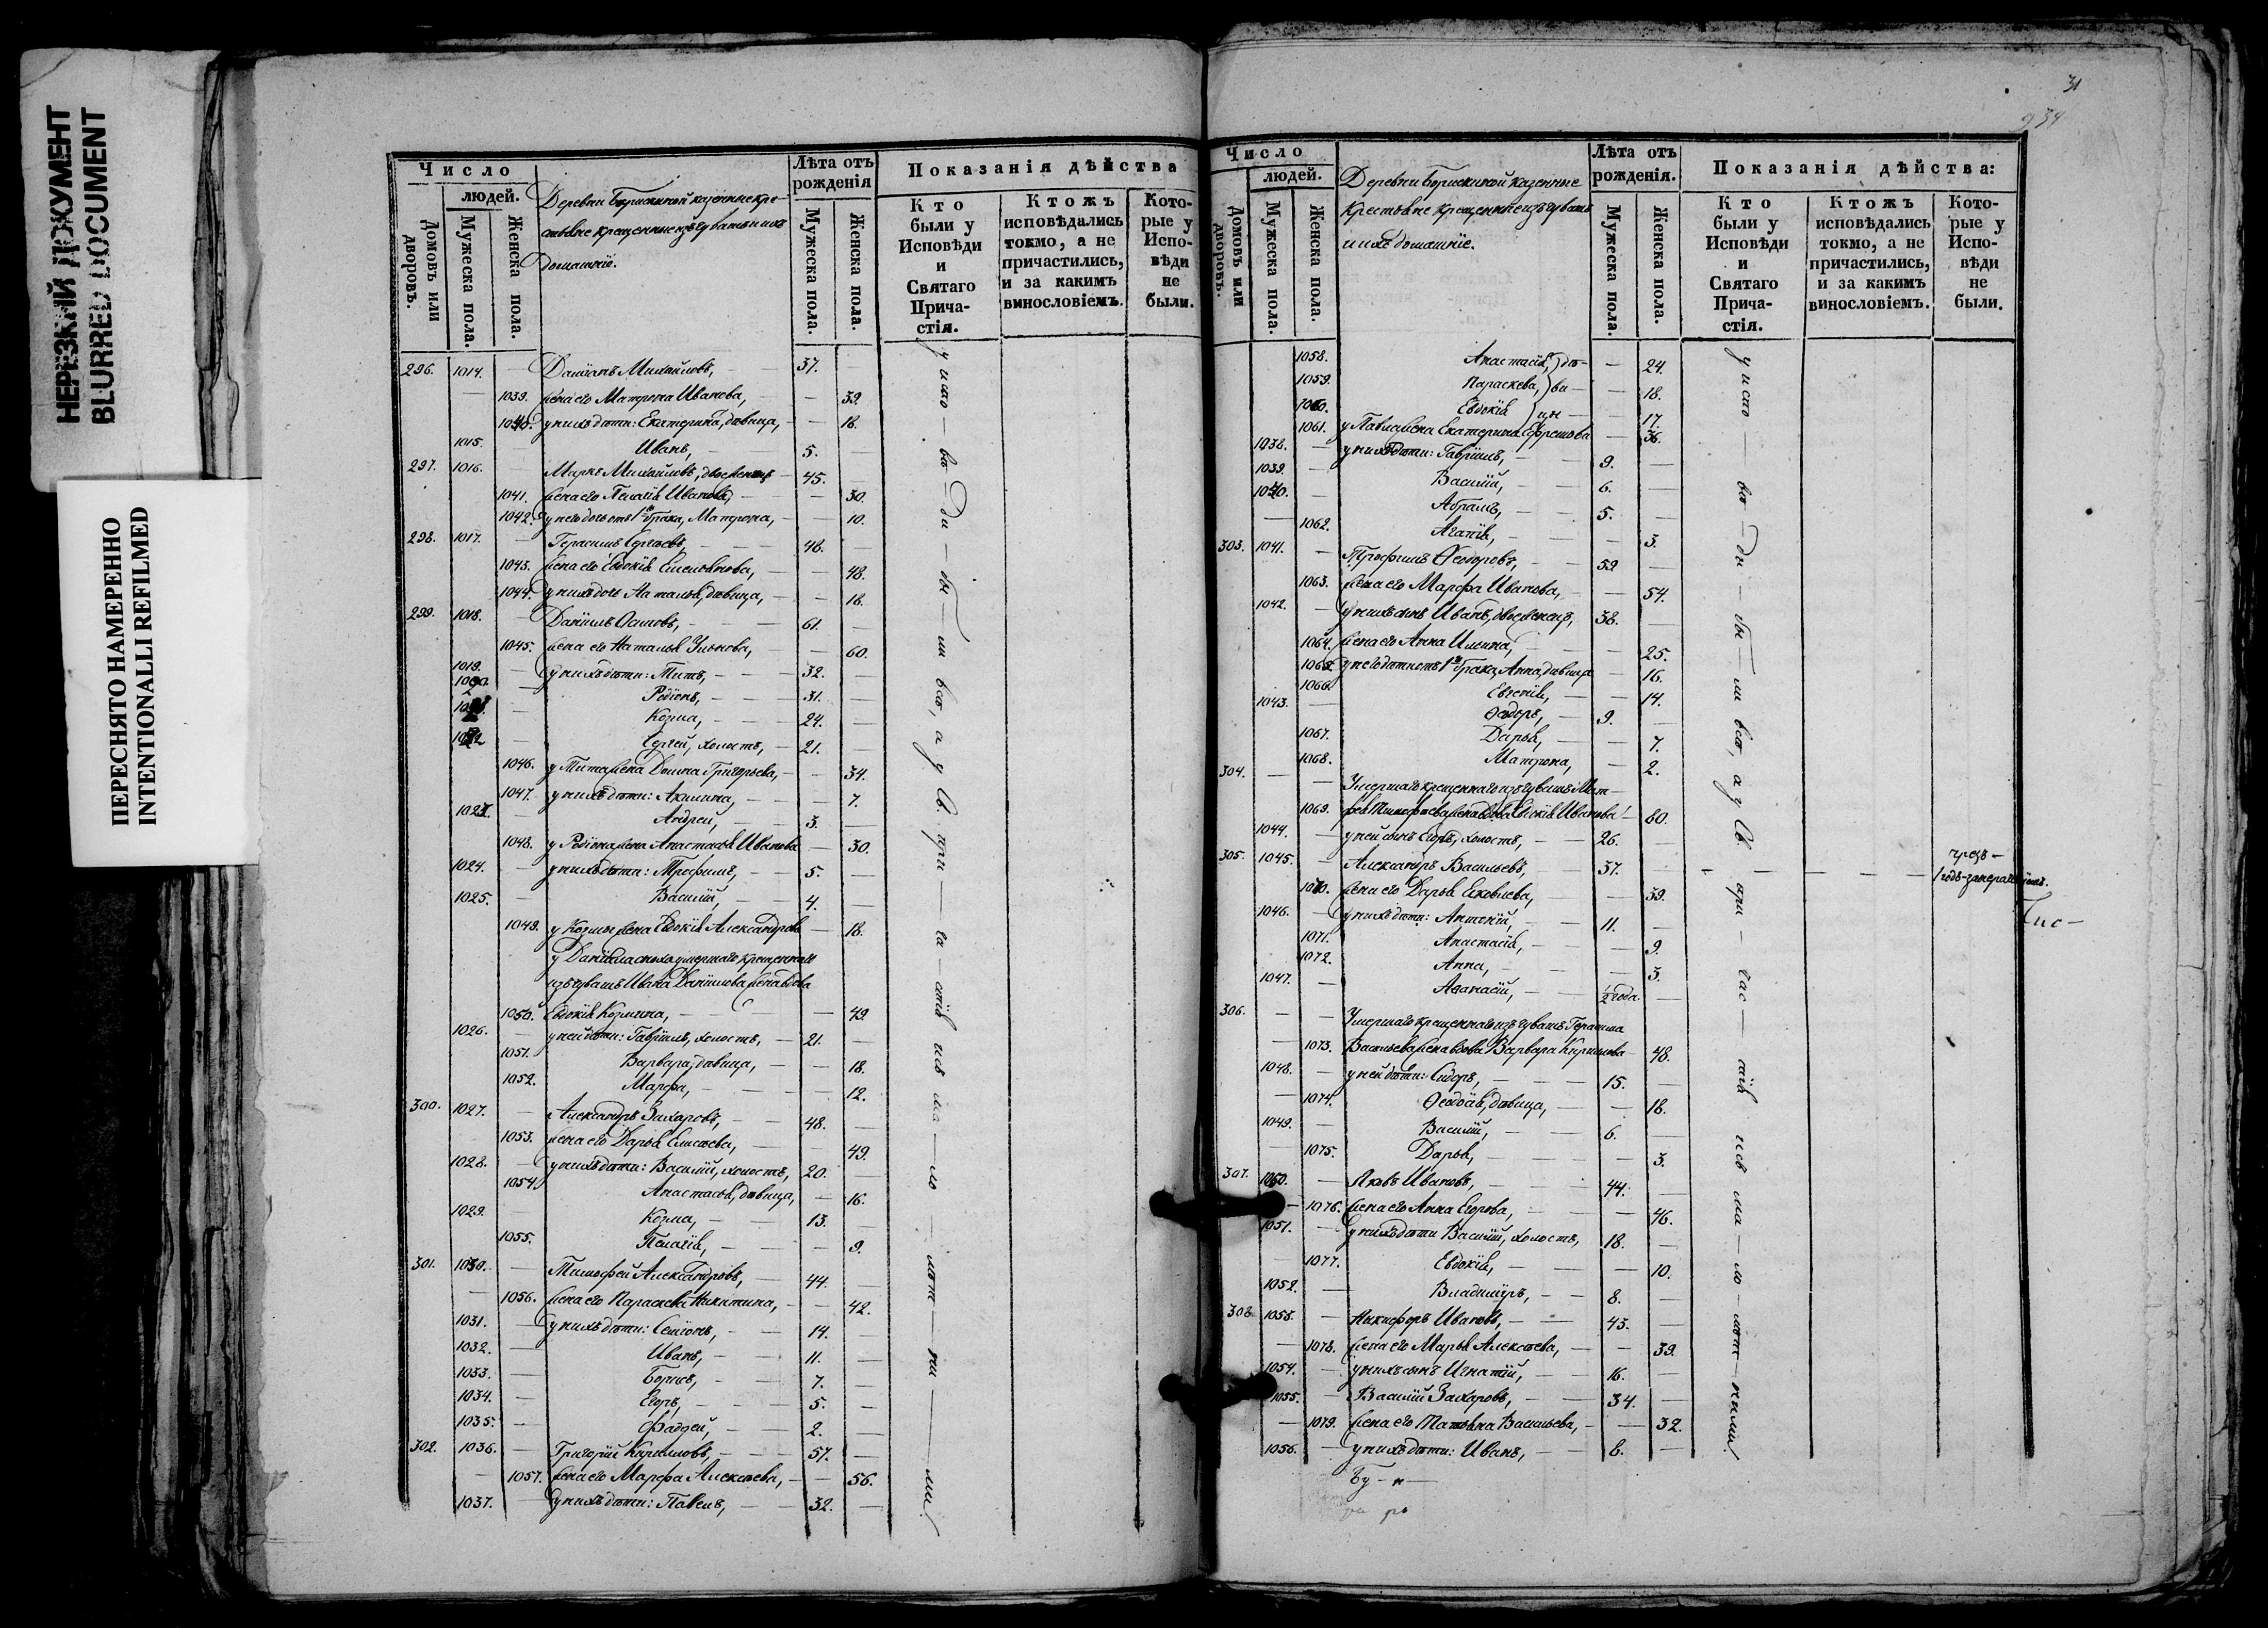 НЕРЕЗКИЙ ДОКУМЕНТ
BLURRED DOCUMENT
ПЕРЕСНЯТО НАМЕРЕННО
INTENTIONALLI REFILMED
Число
людей.
Домовъ или дворовъ.
Мужеска пола.
Женска пола.
Деревни Борискиной казенные кре-
стьяне крещенные изъ чувашъ и ихъ
домашніе.
Лѣта отъ рожденія
Мужеска пола.
Женска пола.
Показанія дѣйства
Кто были у Исповѣди и Святаго Прича-стія.
Ктожъ исповѣдались токмо, а не причастились, и за какимъ винословіемъ.
Кото-рые у Испо-вѣди не были.
296. 1014. — Даміанъ Михайловъ, 37.
— 1039. жена его Матрона Иванова, — 39.
1040. у нихъ дѣти: Екатерина, дѣвица, — 18.
1015. — Иванъ, 5.
297. 1016. — Маркъ Михайловъ, двоеженецъ 45.
1041. жена его Пелагія Иванова, — 30.
1042. у него дочь отъ 1го брака, Матрона, — 10.
298. 1017. — Герасимъ Сергѣевъ 48. —
1043. жена его Евдокія Емельянова, — 48.
1044. у нихъ дочь Наталья, дѣвица, — 18.
299. 1018. — Даніилъ Осиповъ, 61. —
1045. жена его Наталья Ульянова, — 60.
1019. — у нихъ дѣти: Титъ, 32. —
1020. — Родіонъ, 31. —
1021. — Козма, 24. —
1022. — Сергѣй, холостъ, 21. —
1046. у Тита жена Домна Григорьева, — 34.
1047. у нихъ дѣти: Акилина, — 7.
1023. — Андрей, 3. —
1048. у Родіона жена Анастасья Иванова — 30.
1024. — у нихъ дѣти: Трофимъ, 5. —
1025. — Василій, 4. —
1049. у Козмы жена Евдокія Александрова — 18.
у Даніила сноха умершаго крещеннаго
изъ чувашъ Ивана Данилова жена вдова
1050. Евдокія Козмина, — 49.
1026. — у ней дѣти: Гавріилъ, холостъ, 21. —
1051. Варвара, дѣвица, — 18.
1052. Марфа, — 12.
300. 1027. — Александръ Захаровъ, 48. —
1053. жена его Дарья Елисѣева, — 49.
1028. — у нихъ дѣти: Василій, холостъ, 20. —
1054. Анастасья, дѣвица, — 16.
1029. — Козма, 13. —
1055. Пелагія, — 9.
301. 1030. — Тимофей Александровъ, 44. —
— 1056. жена его Параскева Никитина, — 42.
1031. — у нихъ дѣти: Семіонъ, 14. —
1032. — Иванъ, 11. —
1033. — Борисъ, 7. —
1034. — Егоръ, 5. —
1035. — Фаддей, 2. —
302. 1036. — Григорій Кирилловъ, 57. —
— 1057. жена его Марфа Алексѣева, — 56.
1037. — у нихъ дѣти: Павелъ, 32. —
у испо — вѣ — ди — бы — ли всѣ, а у Св. при — ча — стія изъ ма — ло — лѣт — ни — ми.
31
934
Число
людей.
Домовъ или дворовъ.
Мужеска пола.
Женска пола.
Деревни Борискиной казенные
крестьяне крещенные изъ чувашъ
и ихъ домашніе.
Лѣта отъ рожденія.
Мужеска пола.
Женска пола.
Показанія дѣйства:
Кто были у Исповѣди и Святаго Прича-стія.
Ктожъ исповѣдались токмо, а не причастились, и за какимъ винословіемъ.
Кото-рые у Испо-вѣди не были.
1058. Анастасія, } дѣ- — 24.
1059. Параскева, } ви- — 18.
1060. Евдокія } цы — 17.
1061. у Павла жена Екатерина Ефремова — 36.
1038. — у нихъ дѣти: Гавріилъ, 9. —
1039. — Василій, 6. —
1040. — Абрамъ, 5. —
— 1062. Агапія, — 3.
303. 1041. — Трофимъ Ѳеодоровъ, 59 —
1063. жена его Марфа Иванова, — 54.
1042. — у нихъ сынъ Иванъ, двоеженецъ, 38. —
1064. жена его Анна Ильина, — 25.
1065. у него дѣти отъ 1го брака Анна, дѣвица — 16.
1066. Евгенія, — 14.
1043. — Ѳедоръ, 9. —
1067. Дарья, — 7.
1068. Матрона, — 2.
304. — — Умершаго крещеннаго изъ чувашъ Мат-
1069. фея Тимофѣева жена вдова Евдокія Иванова — 60.
1044. — у ней сынъ Егоръ, холостъ, 26. —
305. 1045. — Александръ Васильевъ, 37. — чрезъ-
1070. жена его Дарья Яковлева, — 39.
1046. — у нихъ дѣти: Антоній, 11. —
1071. Анастасія, — 9.
1072. Анна, — 3.
1047. — Аѳанасій, 1/2 года. —
306. — — Умершаго крещеннаго изъ чувашъ Герасима
— 1073. Васильева жена вдова Варвара Кирилова — 48.
1048. — у ней дѣти: Сидоръ, 15. —
— 1074. Ѳеодосія, дѣвица, — 18.
1049. — Василій, 6. —
— 1075. Дарья, — 3.
307. 1050. — Яковъ Ивановъ, 44. —
— 1076. жена его Анна Егорова, — 46.
1051. — у нихъ дѣти Василій, холостъ, 18. —
— 1077. Евдокія, — 10.
1052. — Владиміръ, 8. —
308. 1053. — Никифоръ Ивановъ, 43. —
— 1078. жена его Марья Алексѣева, — 39.
1054. — у нихъ сынъ Игнатій, 16. —
1055. — Василій Захаровъ, 34. —
— 1079. жена его Татьяна Васильева, — 32.
1056. — у нихъ дѣти: Иванъ, 8. —
у испо — вѣ — ди — бы — ли всѣ, а у Св при — час — тія изъ ма — ло — лѣт — ними.